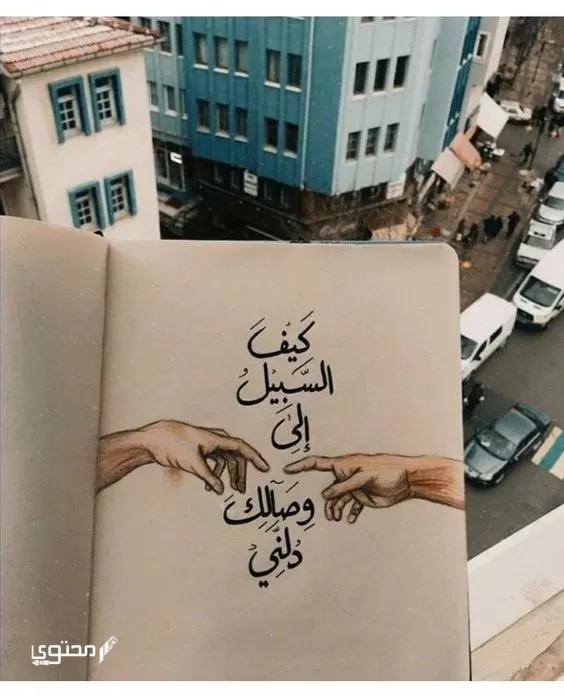 كَيْفَ
السَّبِيْلُ
إِلىٰ
وِصَآلِكَ
دُلنِّيْ
محتوى